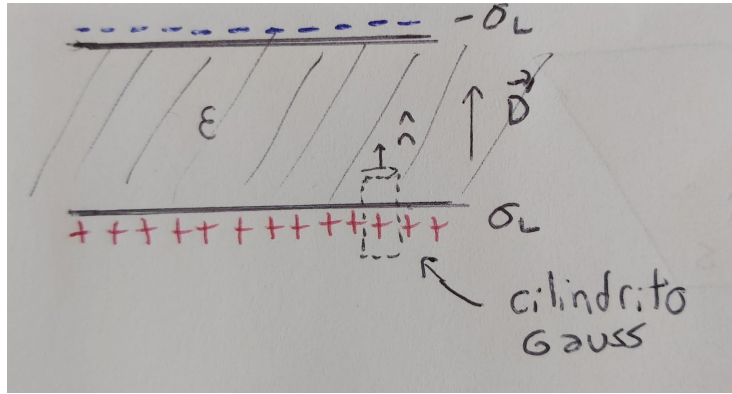 - - - - - - - - - - -σL
ε
n̂
D⃗
+ + + + + + + + + + + + + σL
cilindrito
Gauss